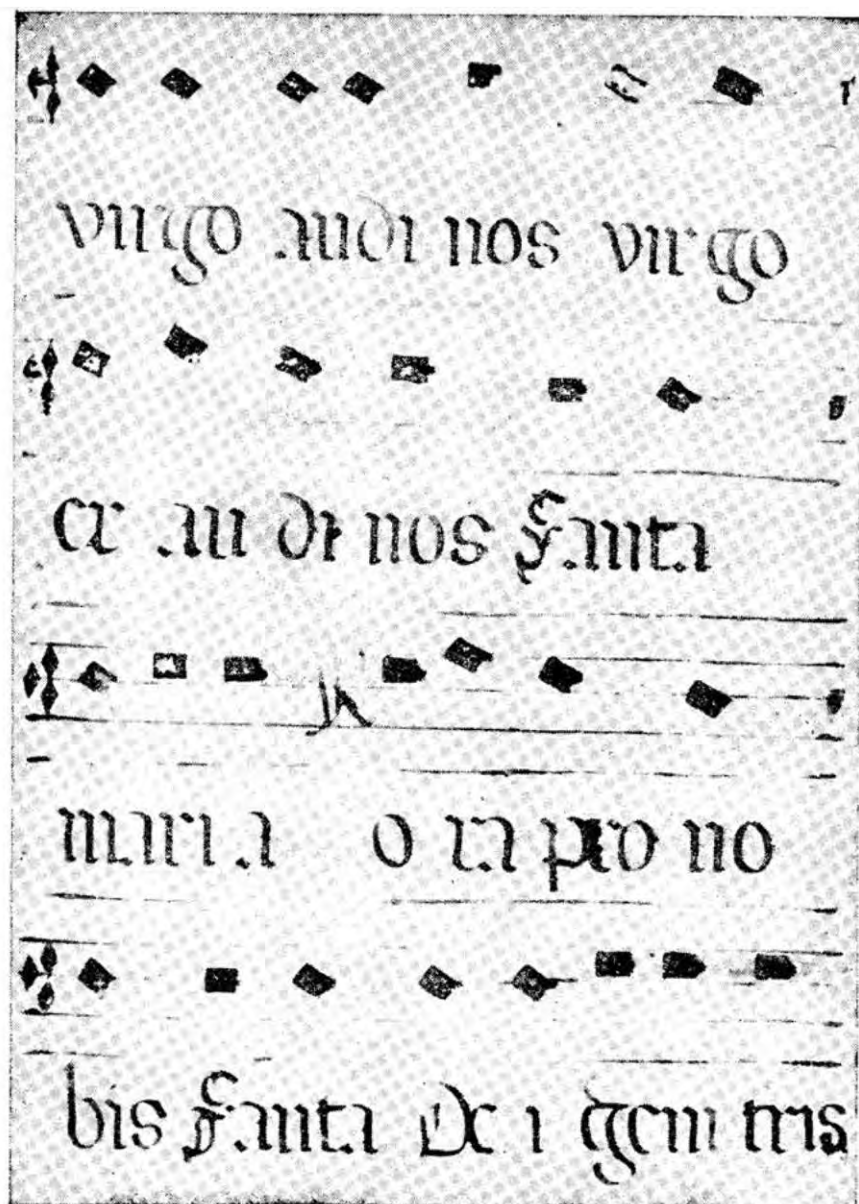 virgo audi nos virgo
ex au di nos Santa
maria o ra pro no
bis Santa De i geni tris